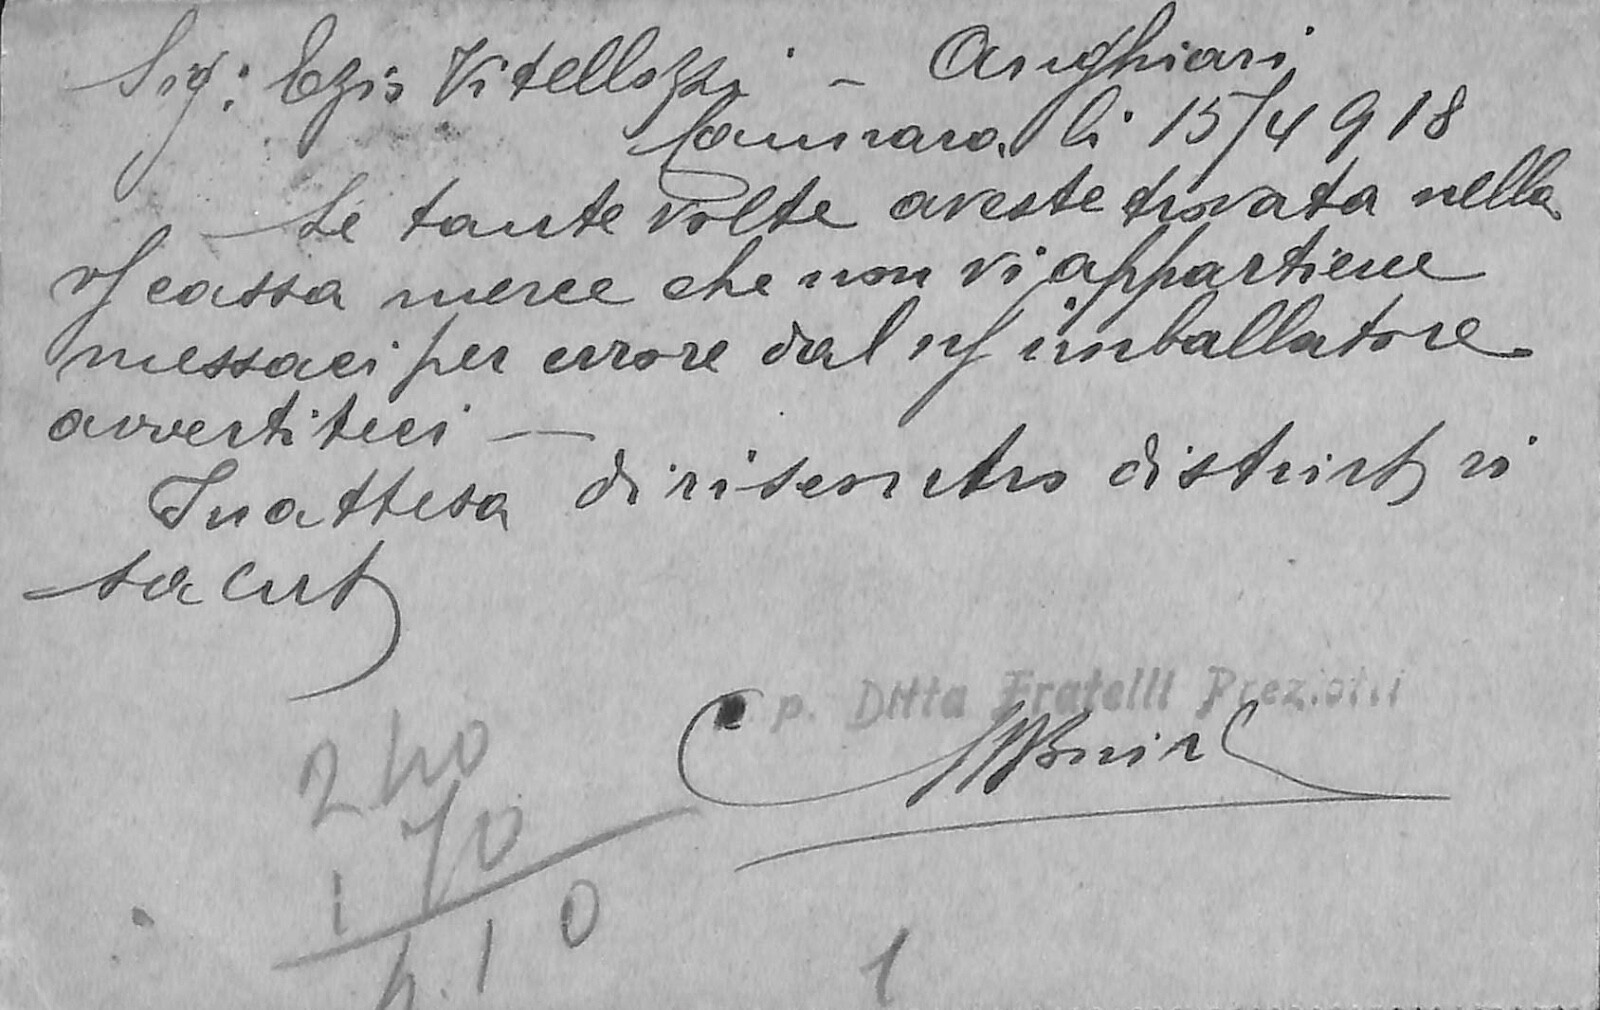 Sig: Ezio Vitellozzi - Anghiari
Cannara, li 15/4 918
Se tante volte aveste trovata nella
vs cassa merce che non vi appartiene
messaci per errore dal ns imballatore
avvertiteci —
In attesa di riscontro distint vi
salut
p. Ditta Fratelli Preziotti
240
170
410
1